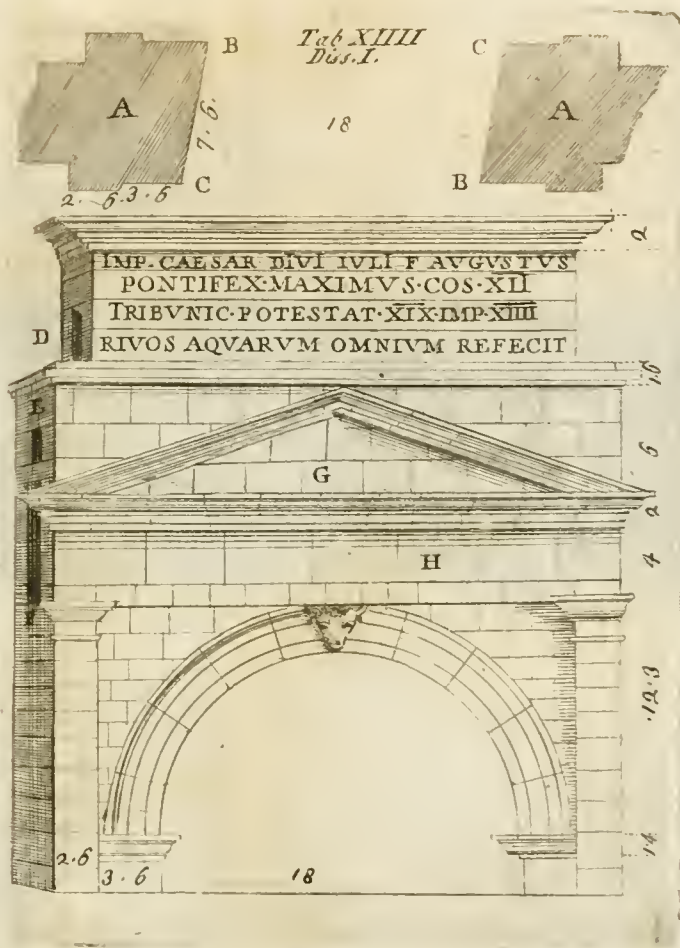 Tab XIIII
Diss. I.
B
C
A
18
A
7. 6.
C
B
2. 6. 3. 6
2
IMP. CAESAR DIVI IVLI F AVGVSTVS
PONTIFEX·MAXIMVS·COS·XII
TRIBVNIC·POTESTAT·XIX·IMP·XIIII
D
RIVOS AQVARVM OMNIVM REFECIT
L
6
G
2
H
4
F
12·3
14
2·6
3·6
18